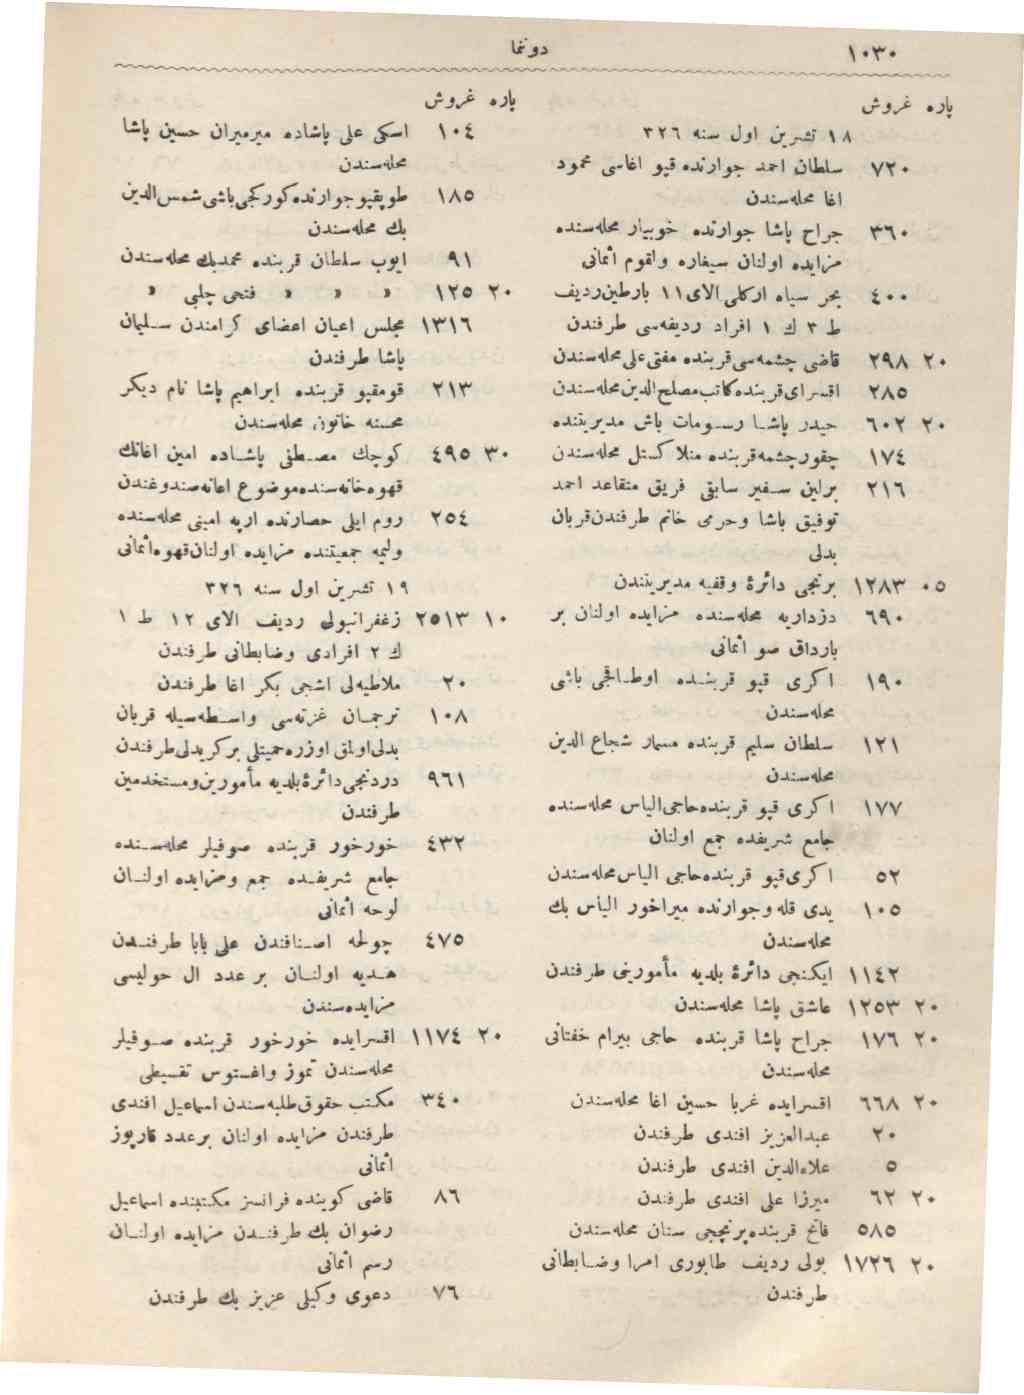 ١٠٣٠
دونما
پاره غروش
١٨ تشرين اول سنه ٣٢٦
٧٢٠ سلطان احمد جوارنده قپو اغاسی محمود
اغا محله‌سندن
٣٦٠ جراح پاشا جوارنده خوبيار محله‌سنده
مزايده اولنان سيغاره والقوم اثمانی
٤٠٠ بحر سياه اركلی الای ١١ بارطين رديف
ط ٣ ك ١ افراد رديفه‌سی طرفندن
٢٠ ٢٩٨ قاضی چشمه‌سی قربنده مفتی علی محله‌سندن
٢٨٥ اقسرای قربنده كاتب مصلح الدين محله‌سندن
٢٠ ٦٠٢ حيدر پاشا رسومات باش مديريتنده
١٧٤ چقورچشمه قربنده منلا كستل محله‌سندن
٢١٦ برلين سفير سابق فريق متقاعد احمد
توفيق باشا وحرمی خانم طرفندن قربان
بدلی
٠٥ ١٢٨٣ برنجی دائرۀ وقفيه مديريتندن
٦٩٠ دزداريه محله‌سنده مزايده اولنان بر
بارداق صو اثمانی
١٩٠ اكری قپو قربنده اوطه‌اقجی باشی
محله‌سندن
١٢١ سلطان سليم قربنده مسمار شجاع الدين
محله‌سندن
١٧٧ اكری قپو قربنده حاجی الياس محله‌سنده
جامع شريفده جمع اولنان
٥٢ اكری قپو قربنده حاجی الياس محله‌سندن
١٠٥ يدی قله وجوارنده ميراخور الياس بك
محله‌سندن
١١٤٢ ايكنجی دائرۀ بلديه مأمورينی طرفندن
٢٠ ١٢٥٣ عاشق پاشا محله‌سندن
٢٠ ١٧٦ جراح پاشا قربنده حاجی بيرام خفتانی
محله‌سندن
٢٠ ٦٦٨ اقسرايده غربا حسين اغا محله‌سندن
٢٠ عبدالعزيز افندی طرفندن
٥ علاءالدين افندی طرفندن
٢٠ ٦٢ ميرزا علی افندی طرفندن
٥٨٥ فاتح قربنده پرنچجی سنان محله‌سندن
٢٠ ١٧٢٦ بولی رديف طابوری امرا وضابطانی
طرفندن
پاره غروش
١٠٤ اسكی علی پاشاده ميرميران حسين پاشا
محله‌سندن
١٨٥ طوپقپو جوارنده كوركجی باشی شمس الدين
بك محله‌سندن
٩١ ايوب سلطان قربنده محمدبك محله‌سندن
٢٠ ١٢٥ » » » فتحی چلبی »
١٣١٦ مجلس اعيان اعضای كرامندن سليمان
پاشا طرفندن
٢١٣ قومقپو قربنده ابراهيم پاشا نام ديكر
محسنه خاتون محله‌سندن
٣٠ ٤٩٥ كوچك مصطفی پاشاده امين اغانك
قهوه‌خانه‌سنده موضوع اعانه صندوغندن
٢٥٤ روم ايلی حصارنده ارپه امينی محله‌سنده
وليمه جمعيتنده مزايده اولنان قهوه اثمانی
١٩ تشرين اول سنه ٣٢٦
١٠ ٢٥١٣ زغفرانبولی رديف الای ١٢ ط ١
ك ٢ افرادی وضابطانی طرفندن
٢٠ ملاطيه‌لی اشجی بكر اغا طرفندن
١٠٨ ترجمان غزته‌سی واسطه‌سيله قربان
بدلی اولمق اوزره حميتلی بركريدلی طرفندن
٩٦١ دردنجی دائرۀ بلديه مأمورين ومستخدمين
طرفندن
٤٣٢ خورخور قربنده صوفيلر محله‌سنده
جامع شريفده جمع ومزايده اولنان
لوحه اثمانی
٤٧٥ چولحه اصنافندن علی بابا طرفندن
هديه اولنان بر عدد ال حوليسی
مزايده‌سندن
٢٠ ١١٧٤ اقسرايده خورخور قربنده صوفيلر
محله‌سندن تموز واغستوس تقسيطی
٣٤٠ مكتب حقوق طلبه‌سندن اسماعيل افندی
طرفندن مزايده اولنان برعدد قارپوز
اثمانی
٨٦ قاضی كوينده فرانسز مكتبنده اسماعيل
رضوان بك طرفندن مزايده اولنان
رسم اثمانی
٧٦ دعوی وكيلی عزيز بك طرفندن